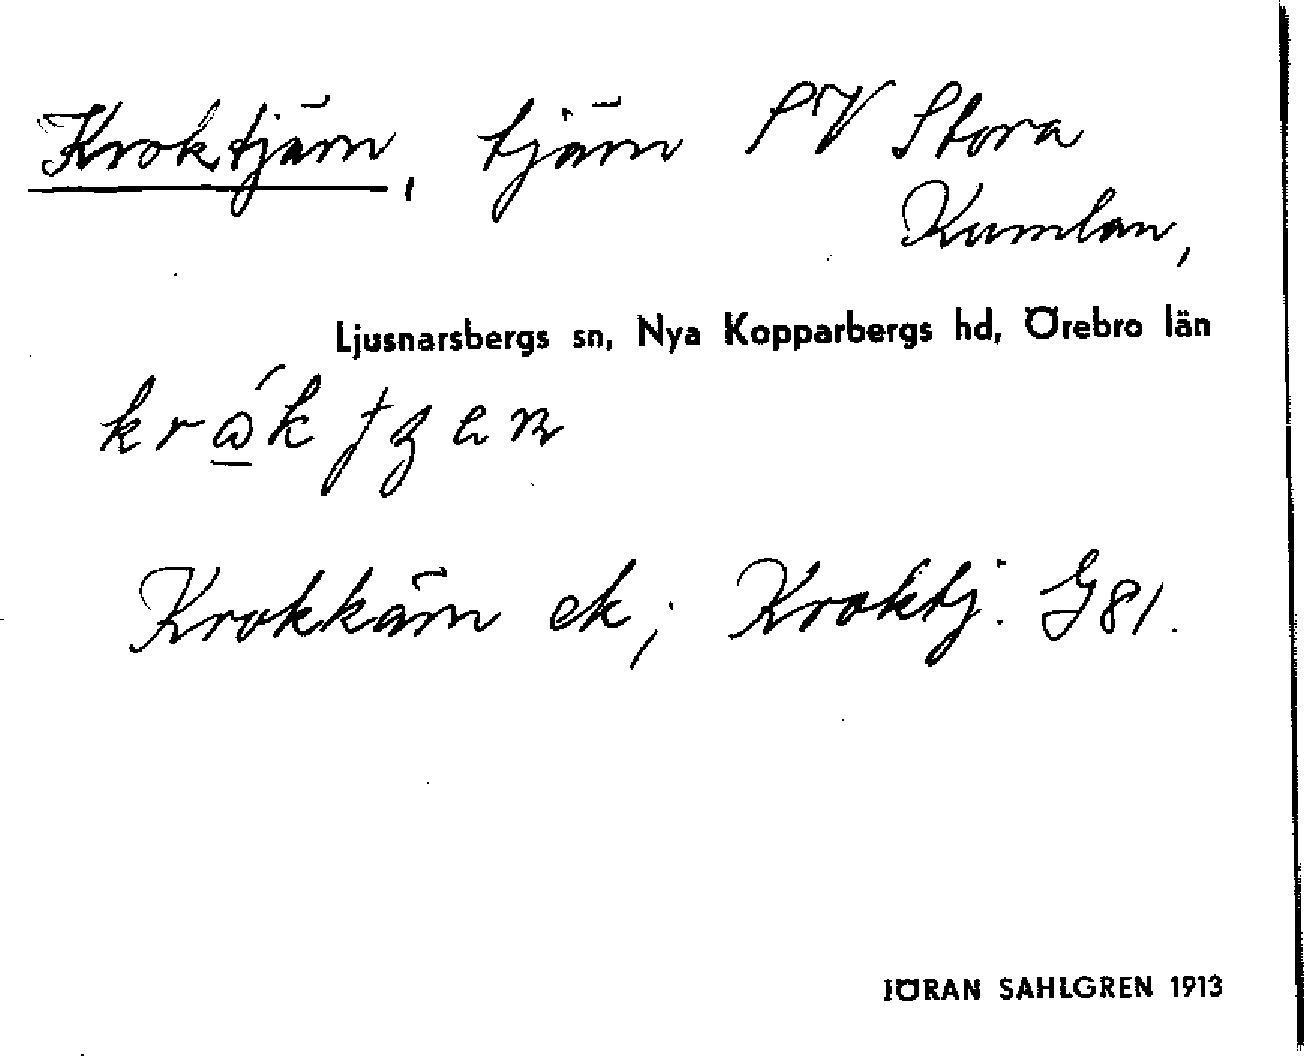 Kroktjärn, tjärn SV Stora
Kumlan,
Ljusnarsbergs sn, Nya Kopparbergs hd, Örebro län
Krokkärn ek; Kroktj. G81.
JÖRAN SAHLGREN 1913